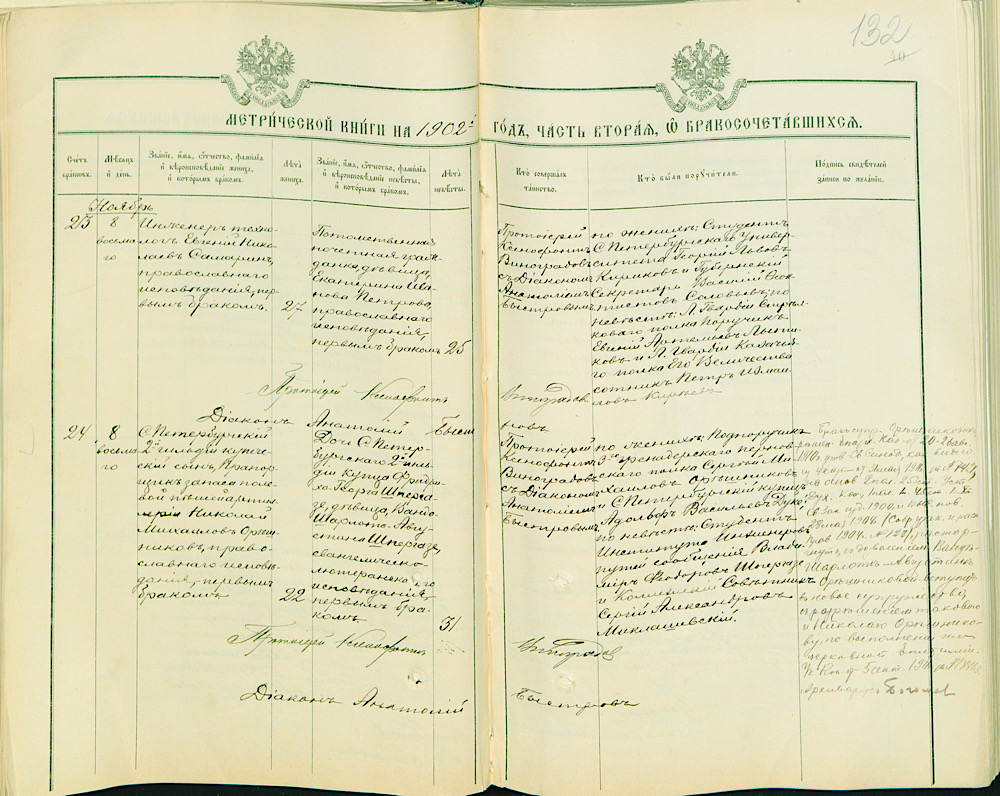 132
10
МЕТРИ́ЧЕСКОЙ КНИ́ГИ НА 1902й ГОДЪ, ЧАСТЬ ВТОРА́Я, Ѿ БРАКОСОЧЕТА́ВШИХСЯ.
Счетъ браковъ.
Мѣсяцъ и день.
Зва́нїе, и҆мя, ѻ҆тчество, фами́лїа
и҆ вѣроисповѣ́данїе жениха̀,
и҆ кото́рымъ бра́комъ.
Лѣта̀ жениха̀.
Зва́нїе, и҆мя, ѻ҆тчество, фами́лїа
и҆ вѣроисповѣ́данїе невѣ́сты,
и҆ кото́рымъ бра́комъ.
Лѣта̀ невѣ́сты.
Кто̀ соверша́лъ
та́инство.
Кто̀ бы́ли поручи́тели.
По́дпись свидѣ́телей
за́писи по жела́нїю.
Ноябрь
23
8
восьма
го
Инженеръ техно-
логъ Евгеній Нико-
лаевъ Самаринъ,
православнаго
исповѣданія, пер-
вымъ бракомъ.
27
Потомственная
почетная граж-
данка, дѣвица,
Екатерина Ива-
нова Петрова,
православнаго
исповѣданія,
первымъ бракомъ
25
Протоіерей
Ксенофонтъ
Виноградовъ
съ Діакономъ
Анатоліемъ
Быстровымъ
по женихѣ: Студентъ
С Петербургскаго Универ-
ситета Георгій Львовъ
Кириковъ и Губернскій
Секретарь Василій
Соловьевъ; по
невѣстѣ: Л. Гвардіи Стрѣл-
коваго полка Поручикъ
Евгеній Артемьевъ
и Л. Гвардіи Казачья-
го полка Его Величества
сотникъ Петръ Измаи-
ловъ
Протоіерей Ксенофонтъ Виноградовъ
Діаконъ Анатолій Быстровъ
24
8
восьма
го
С Петербургскій
2й гильдіи купече-
скій сынъ Прапор-
щикъ запаса поле-
вой пѣшей арти-
леріи Николай
Михаиловъ Орѣш-
никовъ, право-
славнаго исповѣ-
данія, первымъ
бракомъ
22
Дочь С Петер-
бургскаго 2й гиль-
діи купца Фридри-
ха-Георга Шперга-
зе, дѣвица, Ванда-
Шарлота-Авгу-
стина Шпергазе,
евангелическо-
лютеранскаго
исповѣданія,
первымъ бра-
комъ
31
Протоіерей
Ксенофонтъ
Виноградовъ
съ Діакономъ
Анатоліемъ
Быстровымъ
по женихѣ: Подпоручикъ
скаго полка Сергѣй Ми-
хаиловъ Орѣшниковъ
и С Петербургскій купецъ
Адольфъ Васильевъ
по невѣстѣ: Студентъ
Института Инженеровъ
путей сообщенія Влади-
міръ Федоровъ Шпергазе
и Колежскій Совѣтникъ
Сергій Александровъ
Миклашевскій.
Бракъ супр. Орѣшниковыхъ
1904. № 128), растор-
гнутъ, съ дозволеніемъ Вандѣ-
Шарлотѣ-Августинѣ
Орѣшниковой вступать
въ новое супружество,
и Николаю Орѣшнико-
ву, по выполненіи
церковной епитиміи
Протоіерей Ксенофонтъ Виноградовъ
Діаконъ Анатолій Быстровъ